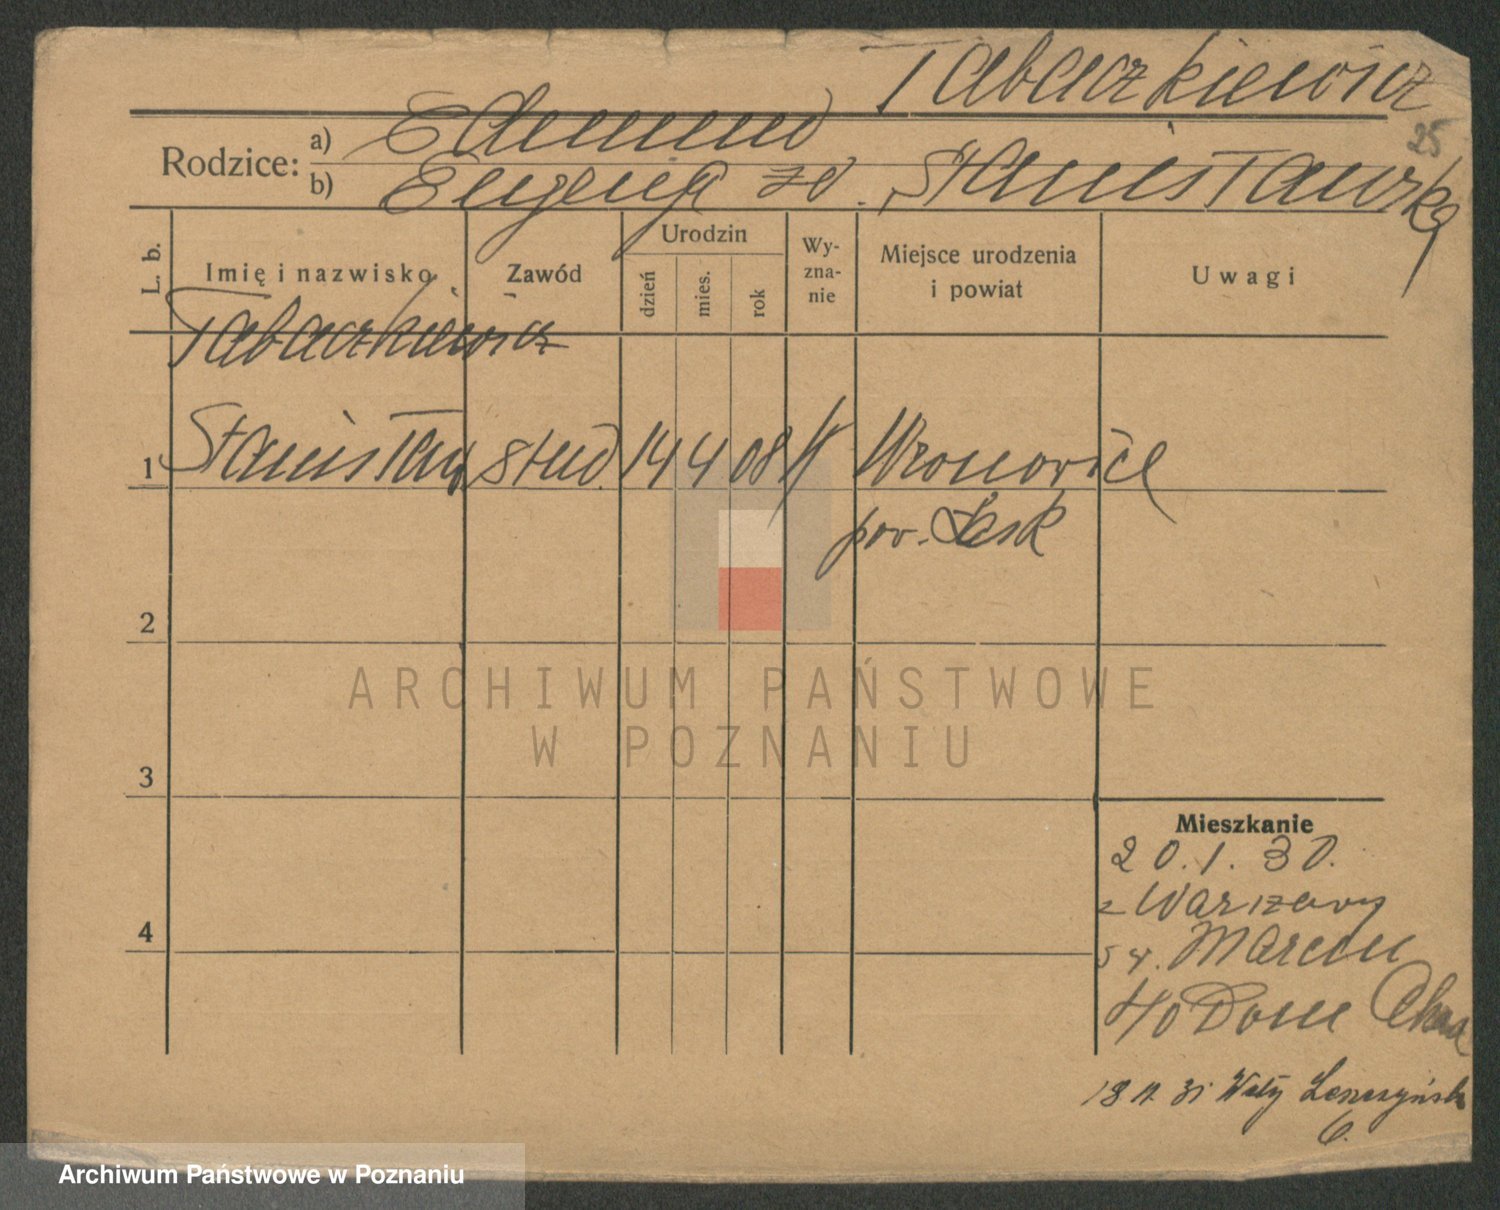 Tabaczkiewicz
25
Rodzice: a) Edmund
b) Eugenja zd. Stanisławska
L. b. Imię i nazwisko Zawód Urodzin dzień mies. rok Wy-zna-nie Miejsce urodzenia i powiat Uwagi
Tabaczkiewicz
1 Stanisław stud. 14 4 08 Wronowice
pow. Łask
2
ARCHIWUM PAŃSTWOWE
W POZNANIU
3
Mieszkanie
20.1.30.
z Warszawy
4
św. Marcin
40 Dom Akad
18 11. 31 Wały Leszczyńsk
6.
Archiwum Państwowe w Poznaniu